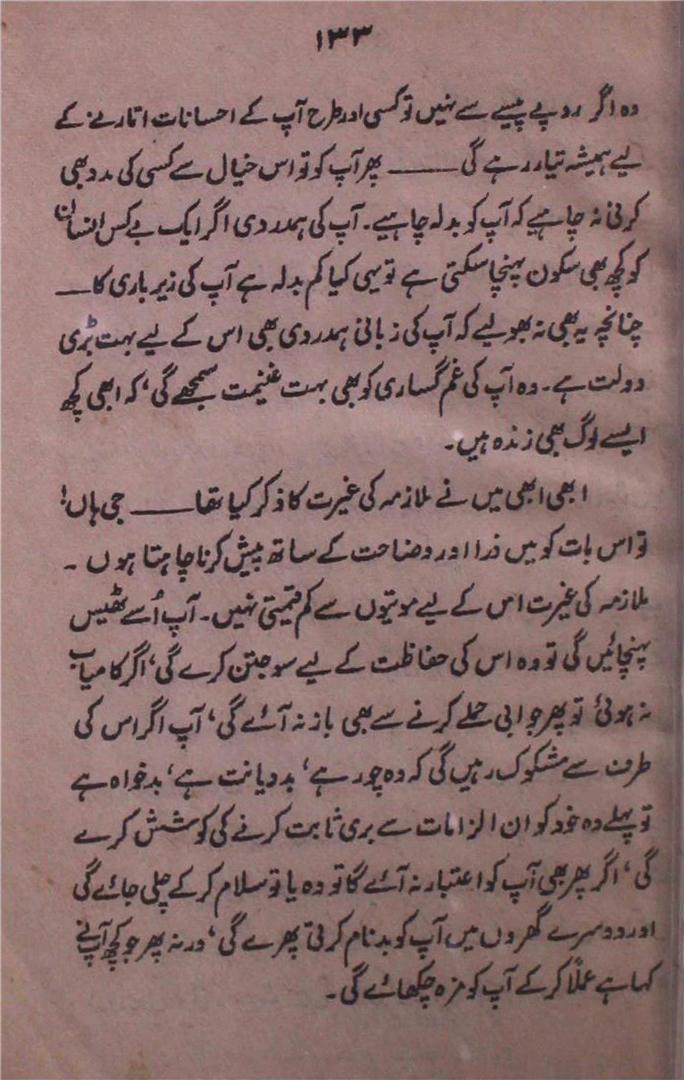 ۱۳۳
وہ اگر روپے پیسے سے نہیں تو کسی اور طرح آپ کے احسانات اتارنے کے
لیے ہمیشہ تیار رہے گی ــــــ پھر آپ کو تو اس خیال سے کسی کی مدد بھی
کرنی نہ چاہیے کہ آپ کو بدلہ چاہیے۔ آپ کی ہمدردی اگر ایک بے کس انسان
کو کچھ بھی سکون پہنچا سکتی ہے تو یہی کیا کم بدلہ ہے آپ کی زیر باری کا ــــ
چنانچہ یہ بھی نہ بھولیے کہ آپ کی زبانی ہمدردی بھی اس کے لیے بہت بڑی
دولت ہے۔ وہ آپ کی غم گساری کو بھی بہت غنیمت سمجھے گی، کہ ابھی کچھ
ایسے لوگ بھی زندہ ہیں۔
ابھی ابھی میں نے ملازمہ کی غیرت کا ذکر کیا تھا ــــــ جی ہاں!
تو اس بات کو میں ذرا اور وضاحت کے ساتھ پیش کرنا چاہتا ہوں ۔
ملازمہ کی غیرت اس کے لیے موتیوں سے کم قیمتی نہیں۔ آپ اُسے ٹھیس
پہنچائیں گی تو وہ اس کی حفاظت کے لیے سو جتن کرے گی، اگر کامیاب
نہ ہوئی تو پھر جوابی حملے کرنے سے بھی باز نہ آئے گی، آپ اگر اس کی
طرف سے مشکوک رہیں گی کہ وہ چور ہے، بددیانت ہے، بدخواہ ہے
تو پہلے وہ خود کو ان الزامات سے بری ثابت کرنے کی کوشش کرے
گی، اگر پھر بھی آپ کو اعتبار نہ آئے گا تو وہ یا تو سلام کر کے چلی جائے گی
اور دوسرے گھروں میں آپ کو بدنام کرتی پھرے گی، ورنہ پھر جو کچھ آپ نے
کہا ہے عملاً کر کے آپ کو مزہ چکھائے گی۔